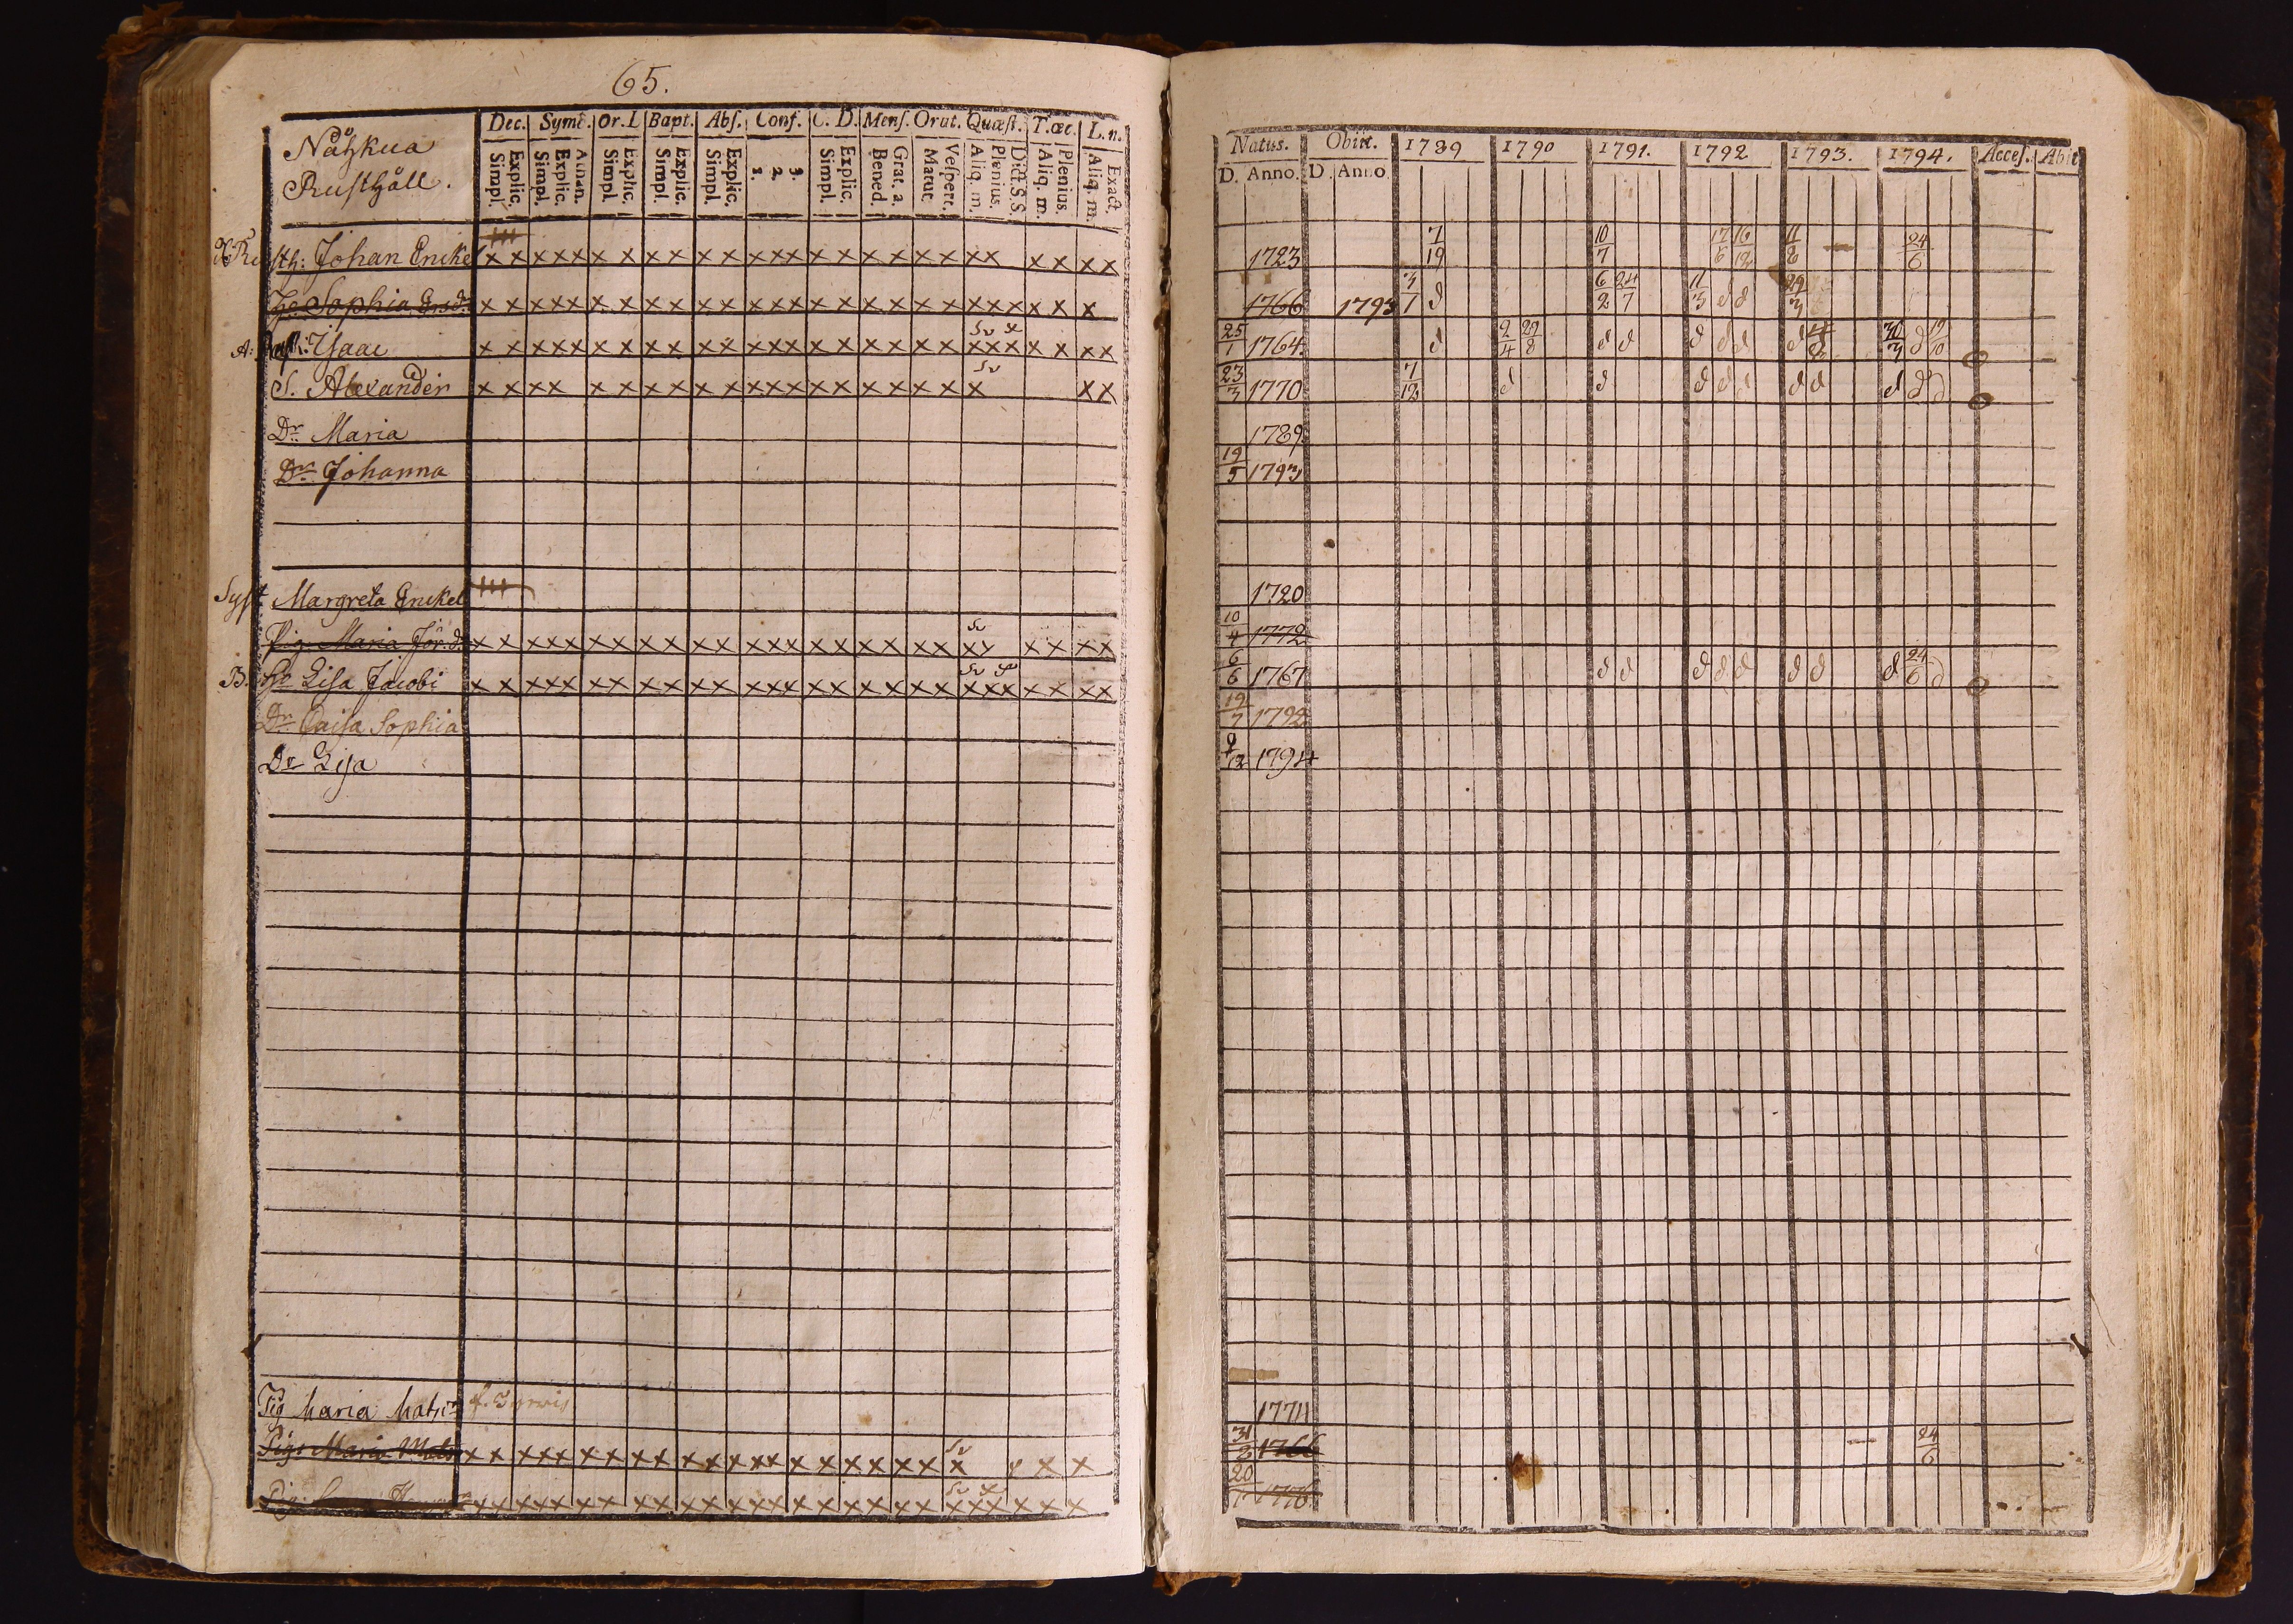 65.
Nåtzkua
Rusthåll.
Dec. Symb. Or. I. Bapt. Abs. Conf. C. D. Mens. Orat. Quæst. T. œc. L. n.
Simpl. Explic. Simpl. Explic. Athan. Simpl. Explic. Simpl. Explic. Simpl. Explic. 1. 2. 3. Simpl. Explic. Bened. Grat. a. Matut. Vespert. Aliq. m. Plenius. Dict. S. S. Aliq. m. Plenius. Aliq. m. Exact.
Natus. Obiit. 1789 1790 1791. 1792 1793. 1794. Acces. Abit
D. Anno. D. Anno.
Rusth: Johan Enckel x x x x x x x x x x x x x x x x x x x x x x x x x x 1723 7/19 10/7 17/6 16/12 11/8 — 24/6
Hr. Sophia Ersd. x x x x x x x x x x x x x x x x x x x x x x x x x x 1766 1793 3/1 d 6/2 24/7 11/3 d d 29/3
A: Isaac x x x x x x x x x x x x x x x x x x x x x x x x x x x 25/1 1764. d 2/4 29/8 d d d d d d d 19/10
S. Alexander x x x x x x x x x x x x x x x x x x x x x x x x 23/3 1770 7/12 d d d d d d d d d d
Dr. Maria 1789
Dr. Johanna 19/5 1793
Syst Margreta Enckel 1720
Pig. Maria Jör.d. x x x x x x x x x x x x x x x x x x x x x x x x x x 10/4 1772
B. Hr Lisa Jacobi x x x x x x x x x x x x x x x x x x x x x x x x x x x 6/6 1767 d d d d d d d d 24/6 d
Dr. Caisa Sophia 19/7 1792
Dr Lisa 9/12 1794
Pig Maria Matsr 1771
Pig: Maria Mats x x x x x x x x x x x x x x x x x x x x x x x x 31/2 1766 — 24/6
Pig: x x x x x x x x x x x x x x x x x x x x x x x x x x 20/1 1776